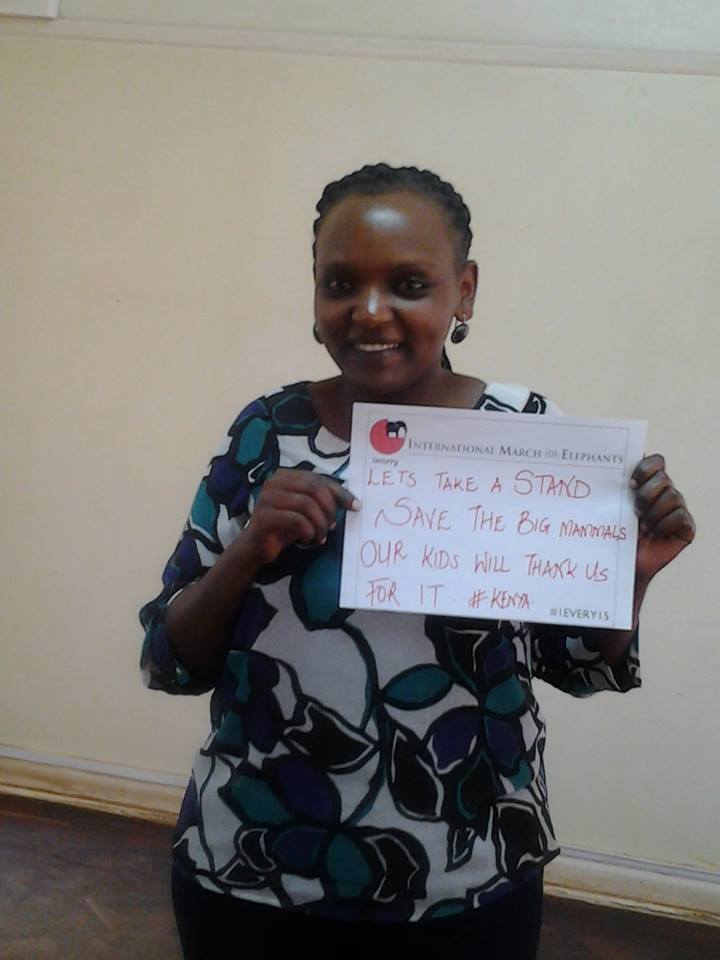 iworry
INTERNATIONAL MARCH FOR ELEPHANTS
LETS TAKE A STAND
SAVE THE BIG MAMMALS
OUR KIDS WILL THANK US
FOR IT. #KENYA.
#1EVERY15